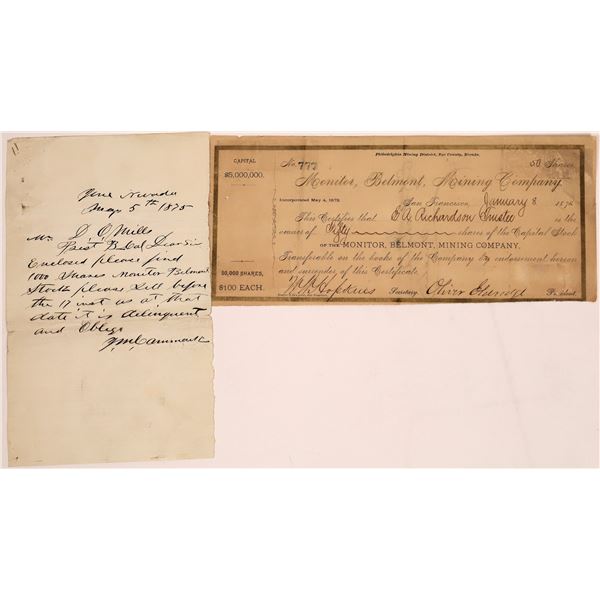 Nevada
May 5th 1875
Mr D. O. Mills
Prest B. Cal Dear Sir
Enclosed please find
1000 Shares Monitor Belmont
Stock please Sell before
the 17 inst as at that
date it is delinquent
and Oblige
CAPITAL
$5,000,000.
50,000 SHARES,
$100 EACH.
Philadelphia Mining District, Nye County, Nevada.
No. 777
50 Shares
Monitor, Belmont, Mining Company.
Incorporated May 4, 1872.
San Francisco, January 8 187
This Certifies that E A Richardson Trustee is the
owner of Fifty shares of the Capital Stock
OF THE MONITOR, BELMONT, MINING COMPANY,
Transferable on the books of the Company by endorsement hereon
and surrender of this Certificate.
Hopkins Secretary. Oliver President.